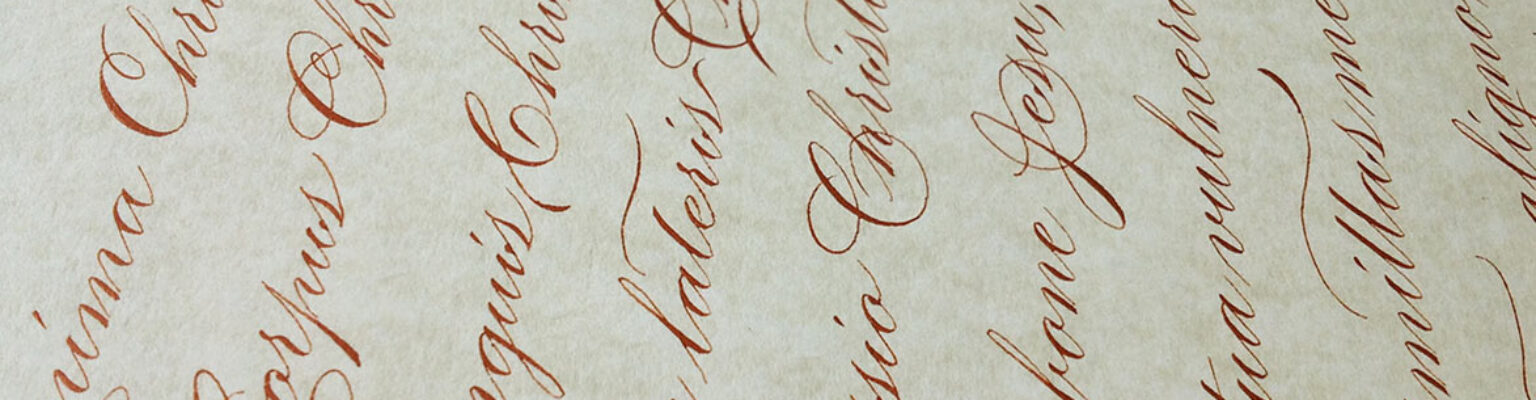 ima Chri
Corpus Chr
nguis Chri
lateris C
sio Christi
bone Jesu,
tua vulner
mittas me
aligno